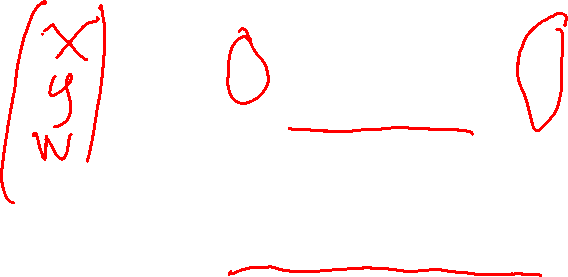 X
y
w
0 0